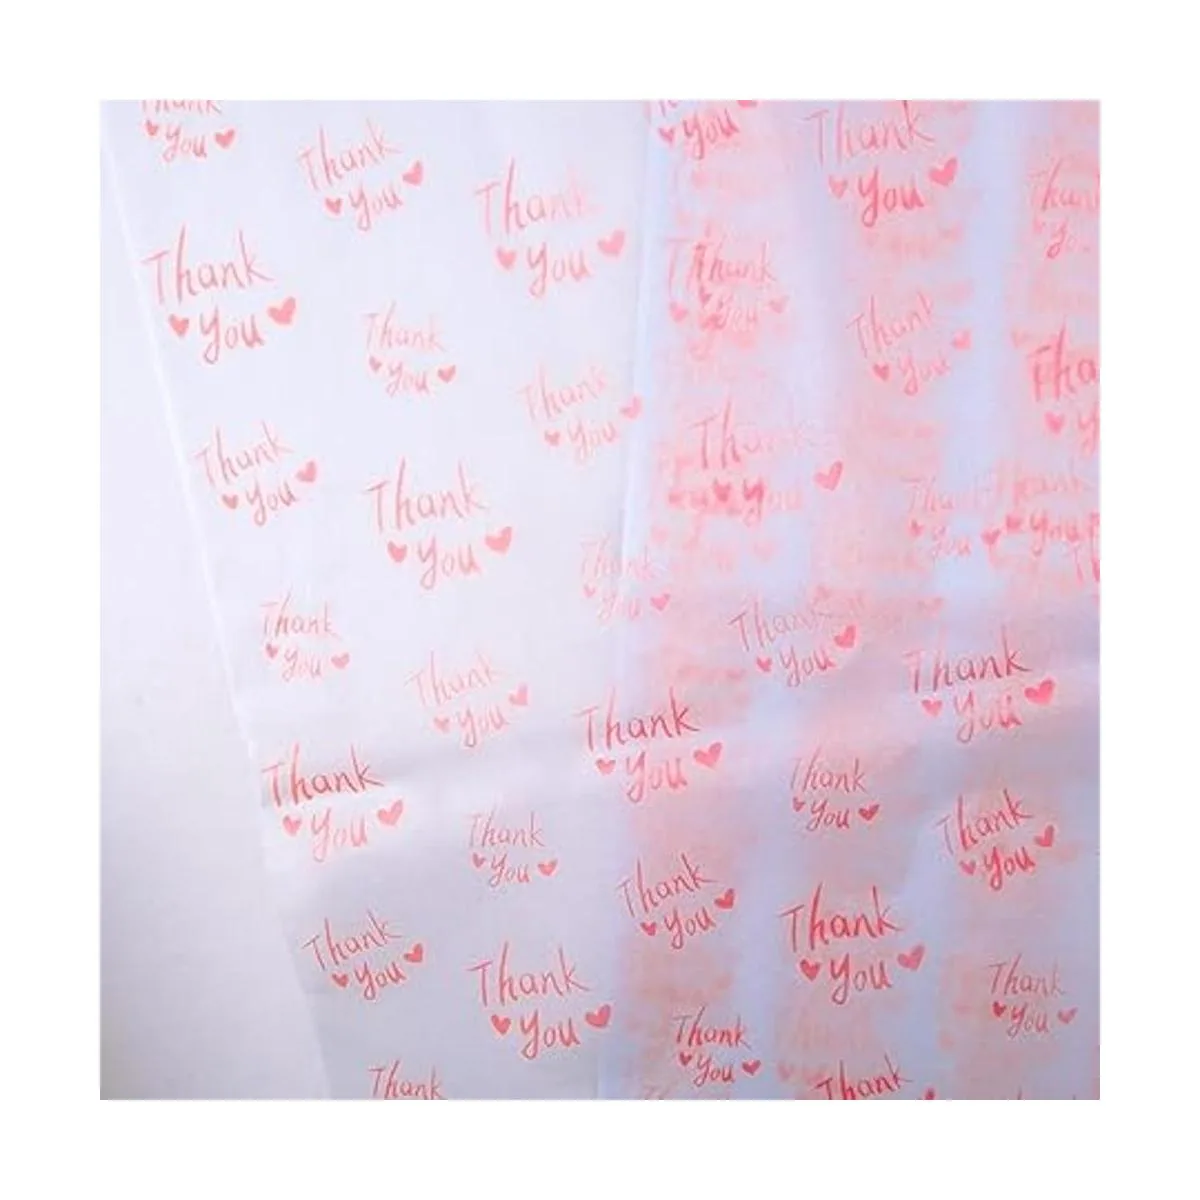 Thank
You
Thank
You
Thank
You
Thank
You
Thank
You
Thank
You
Thank
You
Thank
You
Thank
You
Thank
You
Thank
You
Thank
You
Thank
You
Thank
You
Thank
You
Thank
You
Thank
You
Thank
You
Thank
You
Thank
You
Thank
You
Thank
You
Thank
You
Thank
You
Thank
You
Thank
You
Thank
You
Thank
You
Thank
Thank